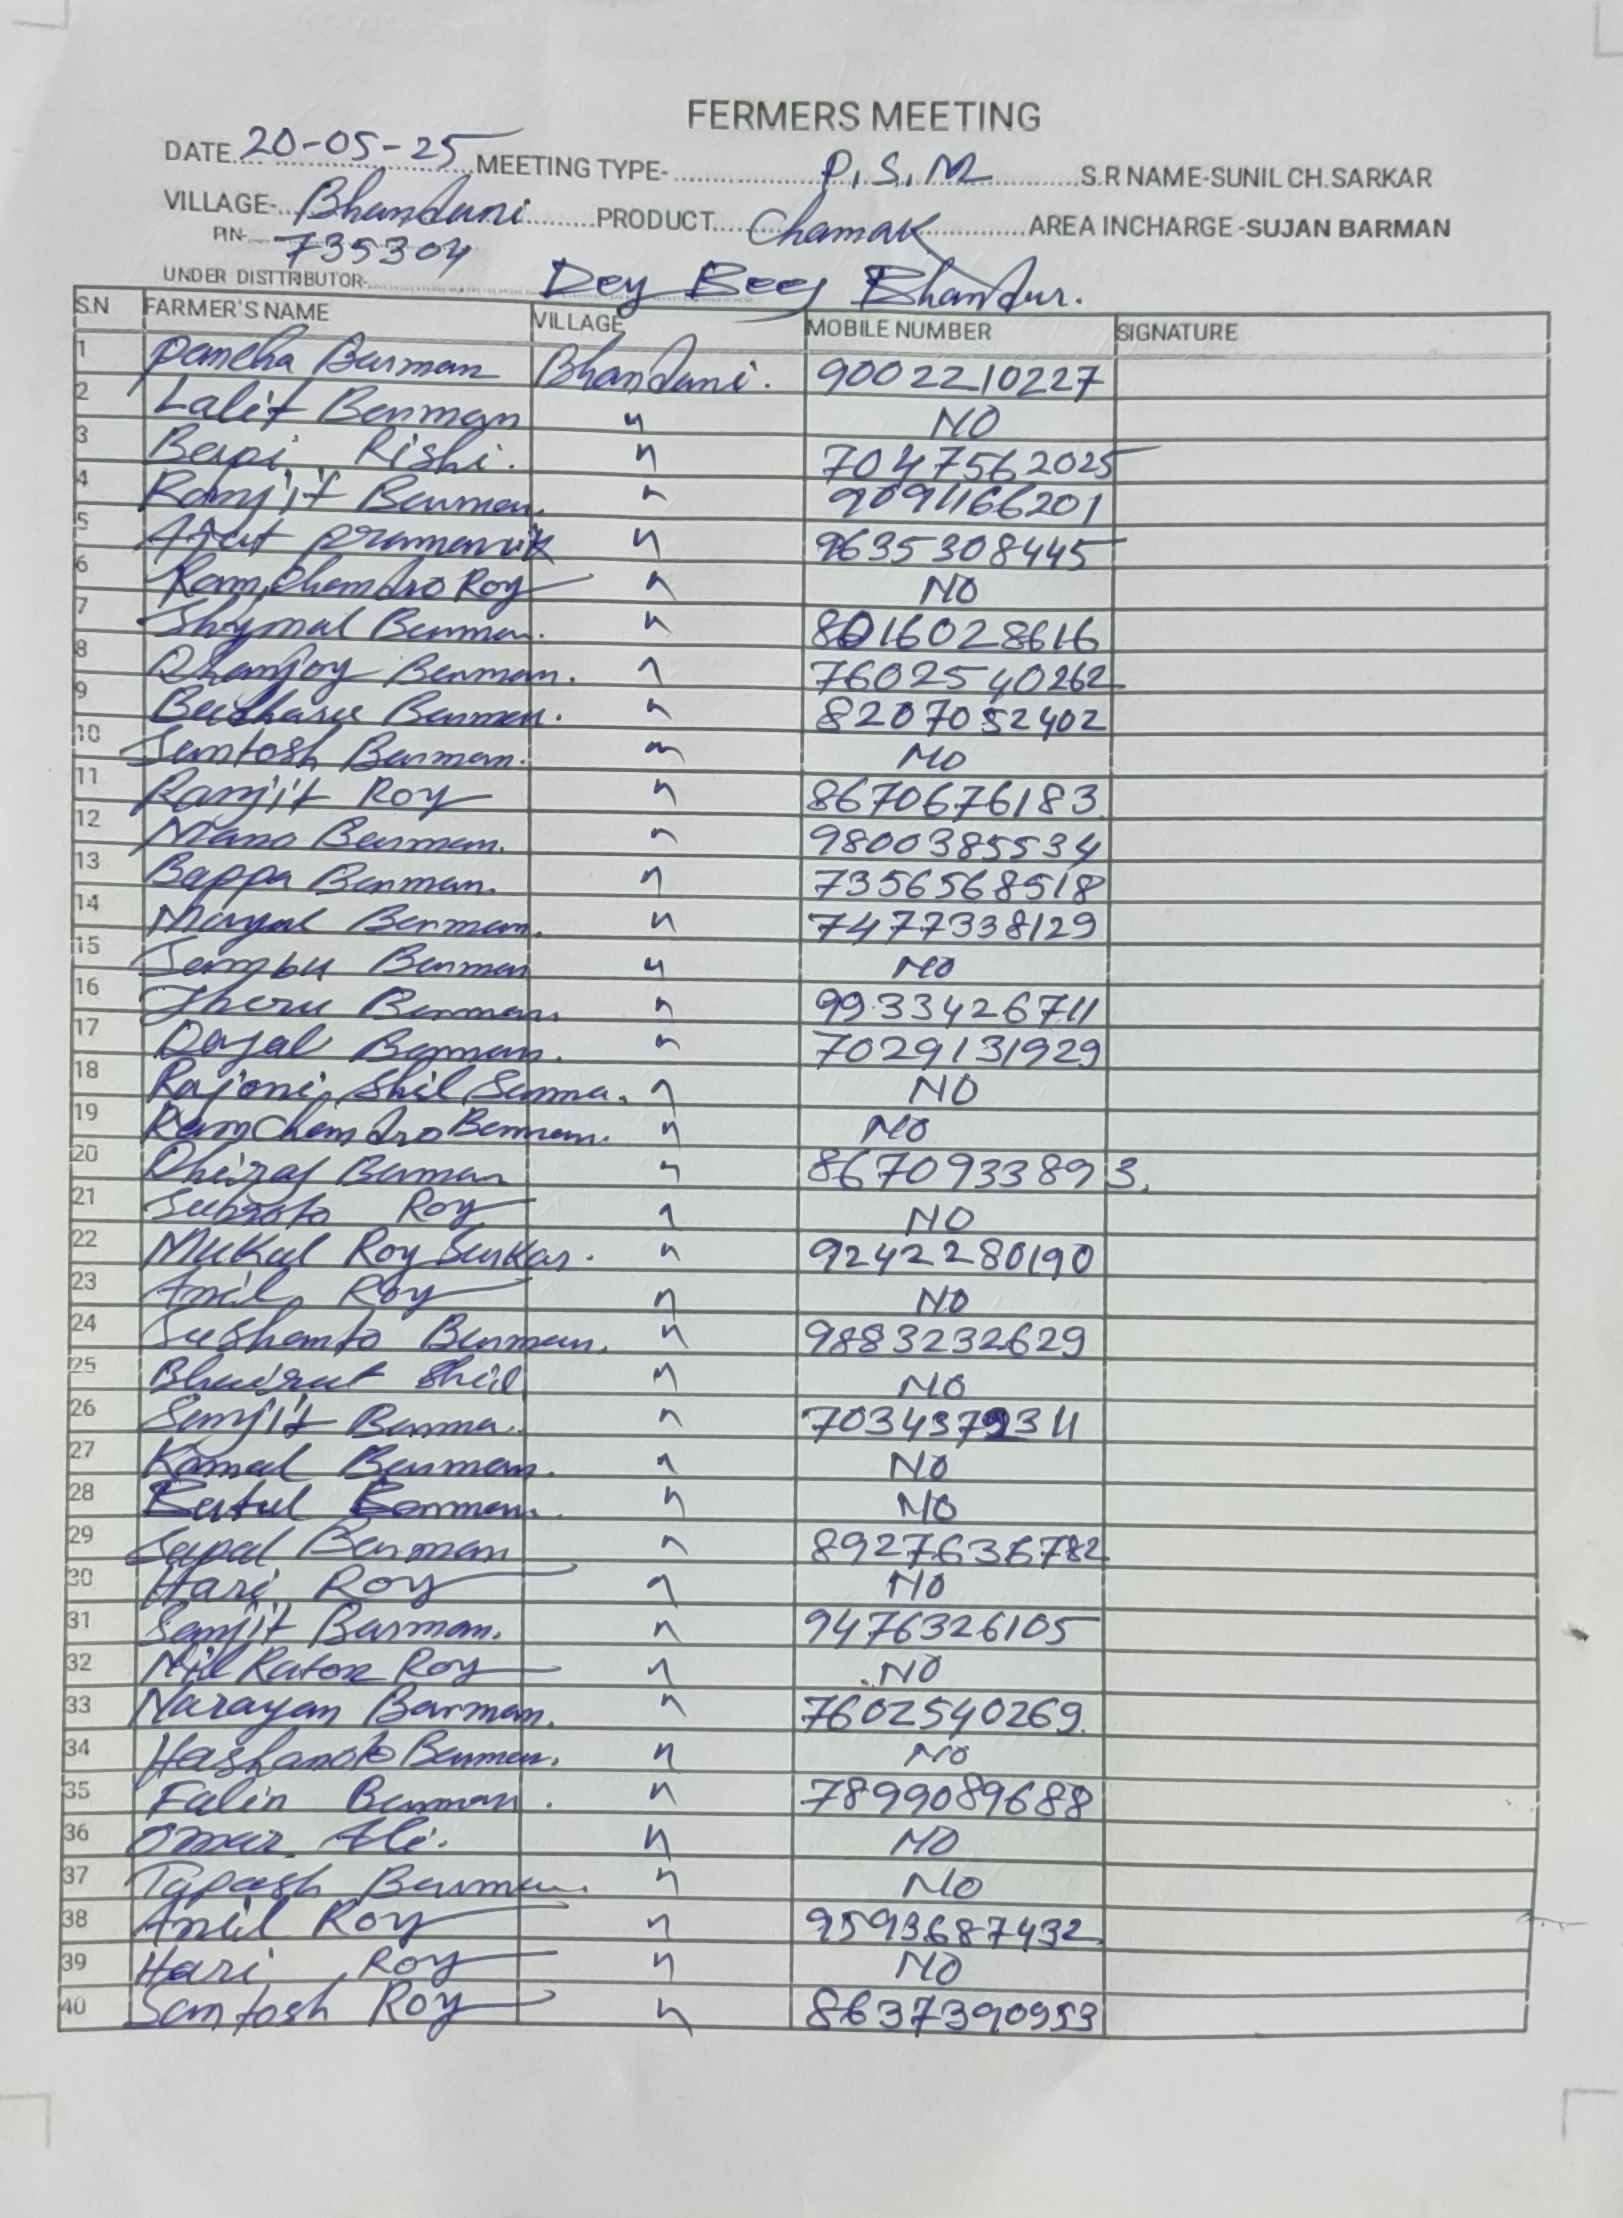 FERMERS MEETING
DATE 20-05-25 MEETING TYPE- P.S.M S.R NAME-SUNIL CH.SARKAR
VILLAGE- Bhandani PRODUCT Chamak AREA INCHARGE-SUJAN BARMAN
PIN- 735304
UNDER DISTTRIBUTOR- Dey Beej Bhandar.
S.N FARMER'S NAME VILLAGE MOBILE NUMBER SIGNATURE
1 Pancha Barman Bhandani. 9002210227
2 Lalit Barman " NO
3 Rishi. " 7047562025
4 Ranjit Barman. " 9091166201
5 Pramanik " 9635308445
6 Ramchandro Roy " NO
7 Shymal Barman. " 8016028616
8 Dhanjoy Barman. " 7602540262
9 Budharu Barman. " 8207052402
10 Santosh Barman. " NO
11 Ranjit Roy " 8670676183
12 Mano Barman. " 9800385534
13 Bappa Barman. " 7356568518
14 Barman. " 7477338129
15 Sambu Barman " NO
16 Barman. " 9933426711
17 Dayal Barman. " 7029131929
18 Rajoni Shil Sarma. " NO
19 Ramchandro Barman. " NO
20 Dhiraj Barman " 8670933893.
21 Subroto Roy " NO
22 Mukul Roy Sarkar. " 9242280190
23 Anil Roy " NO
24 Sushanto Barman. " 9883232629
25 Shil " NO
26 Sanjit Barma. " 7034379311
27 Kamal Barman. " NO
28 Barman. " NO
29 Barman " 8927636782
30 Hari Roy " NO
31 Sanjit Barman. " 9476326105
32 Nil Raton Roy " NO
33 Narayan Barman. " 7602540269.
34 Barman. " NO
35 Falin Barman. " 7899089688
36 Omar Ali. " NO
37 Tapash Barman. " NO
38 Anil Roy " 9593687432
39 Hari Roy " NO
40 Santosh Roy " 8637390953